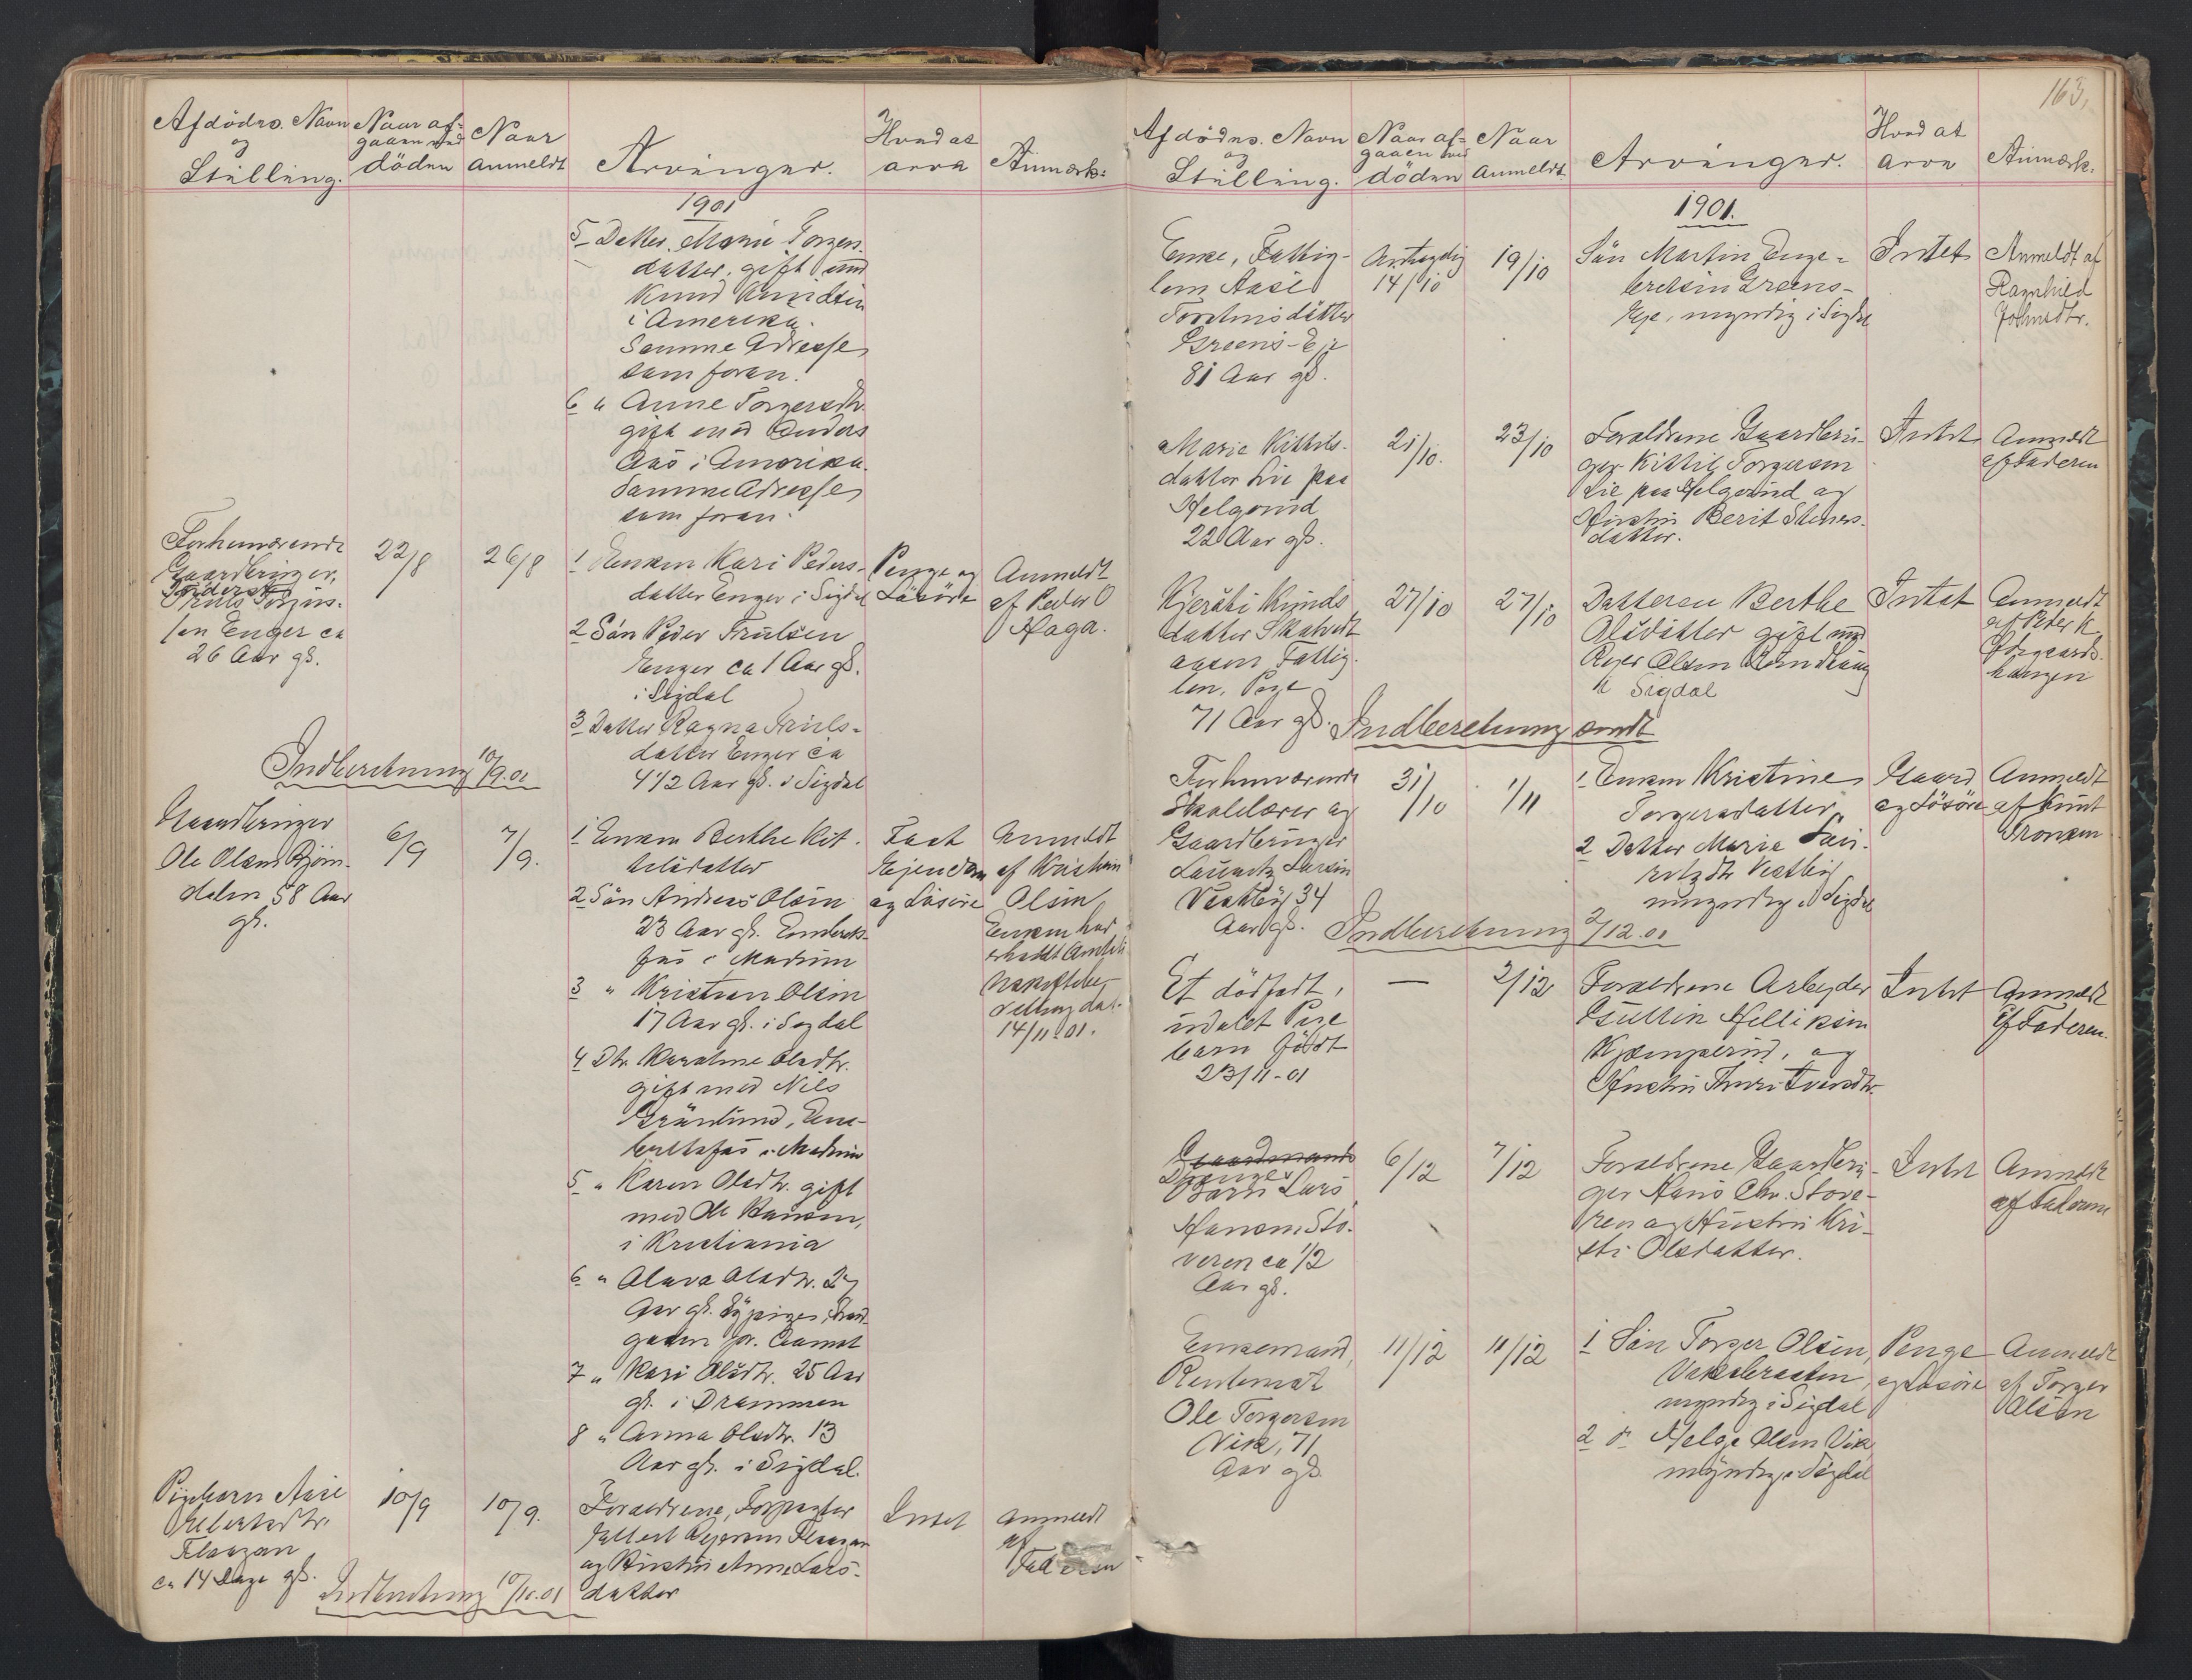 Afdödes Navn
og
Stilling.
Naar af-
gaaen ved
döden
Naar
anmeldt
Arvinger.
Hvad at
arve
Anmærk:
1901
5 Datter Marie Torgers-
datter, gift med
Knud Knudsen
i Amerika.
Samme Adresse
som foran.
6 " Anne Torgersdtr.
gift med Anders
Aas i Amerika.
Samme Adresse
som foran.
Forhenværende
Gaardbruger,
Truls
sen Enger ca
26 Aar gl.
22/8
26/8
1 Enken Kari Peders-
datter Enger i Sigdal
2 Sön Peder Trulsen
Enger ca 1 Aar gl.
i Sigdal
3 Datter Ragna Truls-
datter Enger ca
4 1/2 Aar gl. i Sigdal
Penge og
Lösöre
Anmeldt
af Peder O
Haga.
Indberetning 10/9.01
Gaardbruger
Ole Olsen Bjørn-
dalen 58 Aar
gl.
6/9
7/9.
1 Enken Berthe Kit-
telsdatter
2 Sön Andreas Olsen
23 Aar gl. Embrets-
fos i Modum
3 " Kristian Olsen
17 Aar gl. i Sigdal
4 Dtr. Karoline Olsdtr.
gift med Nils
Grönlund, Em-
bretsfos i Modum
5 " Karen Olsdtr. gift
med Ole Hansen,
i Kristiania
6 " Olava Olsdtr. 27
Aar gl.
gaden
7 " Kari Olsdtr. 25 Aar
gl. i Drammen
8 " Anna Olsdtr. 13
Aar gl. i Sigdal.
Fast
Ejendom
og Lösöre
Anmeldt
af Kristian
Olsen
Enken har
erholdt
14/11 01.
Pigebarn Aase
Flaagan
ca 14 Dage gl.
10/9
10/9.
Forældrene, Forpagter
Flaagan
og Hustru Anne Lars-
datter
Intet
Anmeldt
af
Faderen
Indberetning 10/10.01
163.
Afdödes Navn
og
Stilling.
Naar af-
gaaen ved
döden
Naar
anmeldt
Arvinger.
Hvad at
arve
Anmærk.
1901.
Enke, Fattig-
lem Aase
Torstensdatter
Greens-Eje
81 Aar gl.
Antagelig
14/10
19/10
Sön Martin Enge-
bretsen Greens-
Eje, myndig i Sigdal
Intet
Anmeldt af
Ragnhild
Johnsdtr.
Marie Kittels-
datter Lie paa
Helgerud
22 Aar gl.
21/10.
23/10
Forældrene Gaardbru-
ger Kittil Torgersen
Lie paa Helgerud og
Hustru Berit Steners-
datter.
Intet
Anmeldt
af Faderen
Kjersti Knuds
datter Skatvedt
Fattig-
lem, Pige
71 Aar gl.
27/10
27/10
Datteren Berthe
Olsdatter gift med
Olsen
Sigdal
Intet
Anmeldt
af Peder K
haugen
Indberetning sendt
Forhenværende
Skolelærer og
Gaardbruger
Lauritz Larsen
Vestby 34
Aar gl.
31/10
1/11
1 Enken Kristine
Torgersdatter
2 Datter Marie Lau-
ritzdtr. Vestby
umyndig i Sigdal
Gaard
og Lösöre
Anmeldt
af Knut
Tronsen
Indberetning 2/12.01
Et dödfödt,
udøbt Pige
barn födt
23/11-01
—
2/12
Forældrene Arbejder
Gullik Helliksen
Kjemperud, og
Hustru Thuri
Intet
Anmeldt
af Faderen.
Gaardmands
Drenge
Barn Lars
Hansen Sto-
veren ca 1/2
Aar gl.
6/12
7/12
Forældrene Gaardbru-
ger Hans Chr. Stove-
ren og Hustru Kri-
sti Olsdatter.
Intet
Anmeldt
af Faderen
Enkemand,
Rentenist
Ole Torgersen
Vik, 71
Aar gl.
11/12
11/12
1 Sön Torger Olsen
myndig i Sigdal
2 do Helge Olsen Vik
myndig i Sigdal
Penge
og Lösöre
Anmeldt
af Torger
Olsen